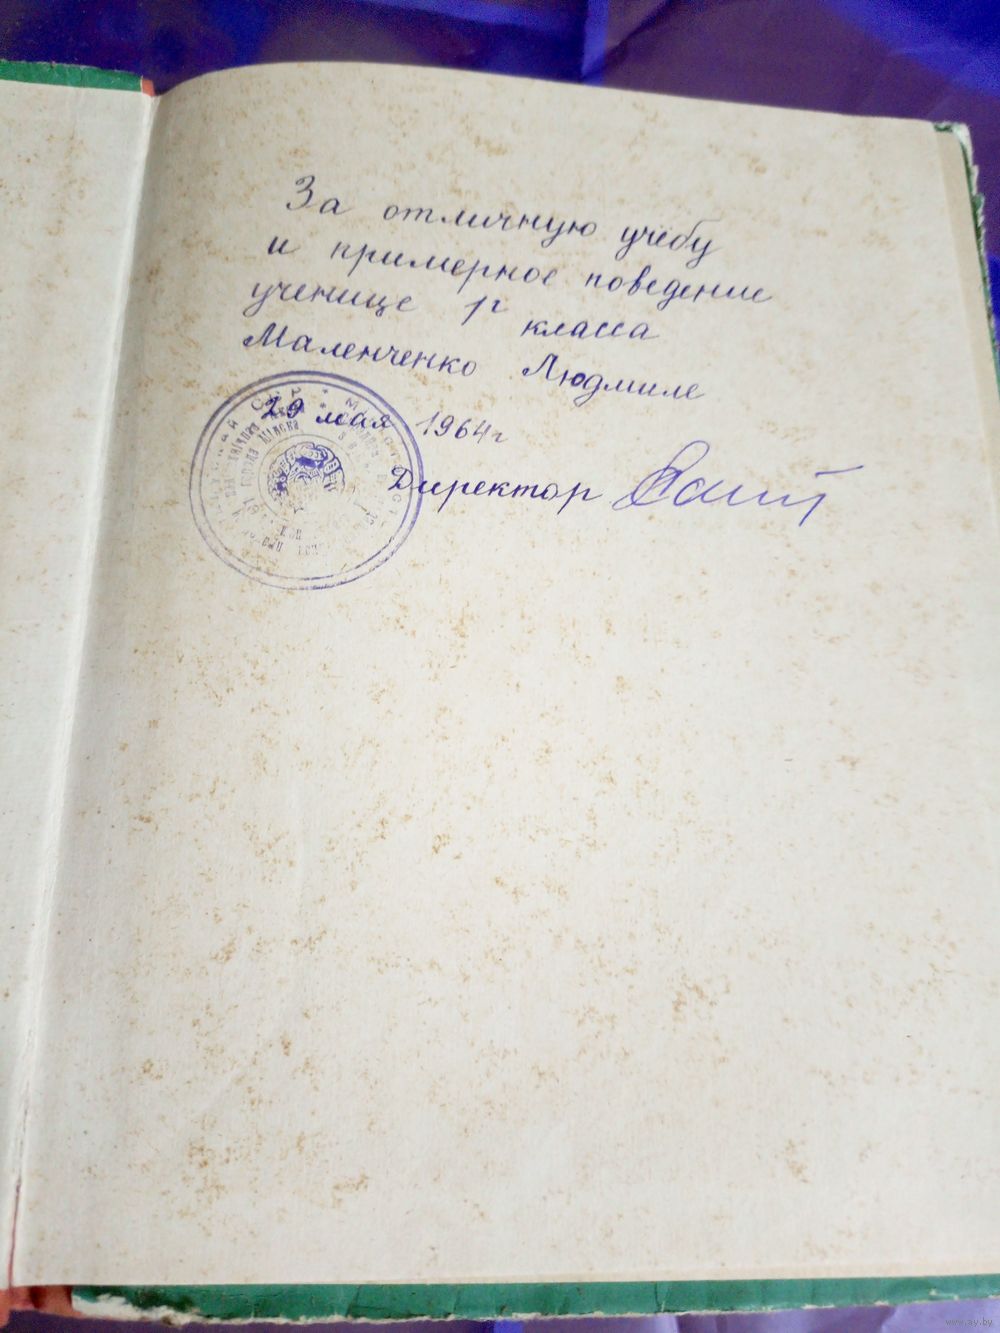 За отличную учебу
и примерное поведение
ученице 1г класса
Маленченко Людмиле
29 мая 1964г
Директор
www.ay.by